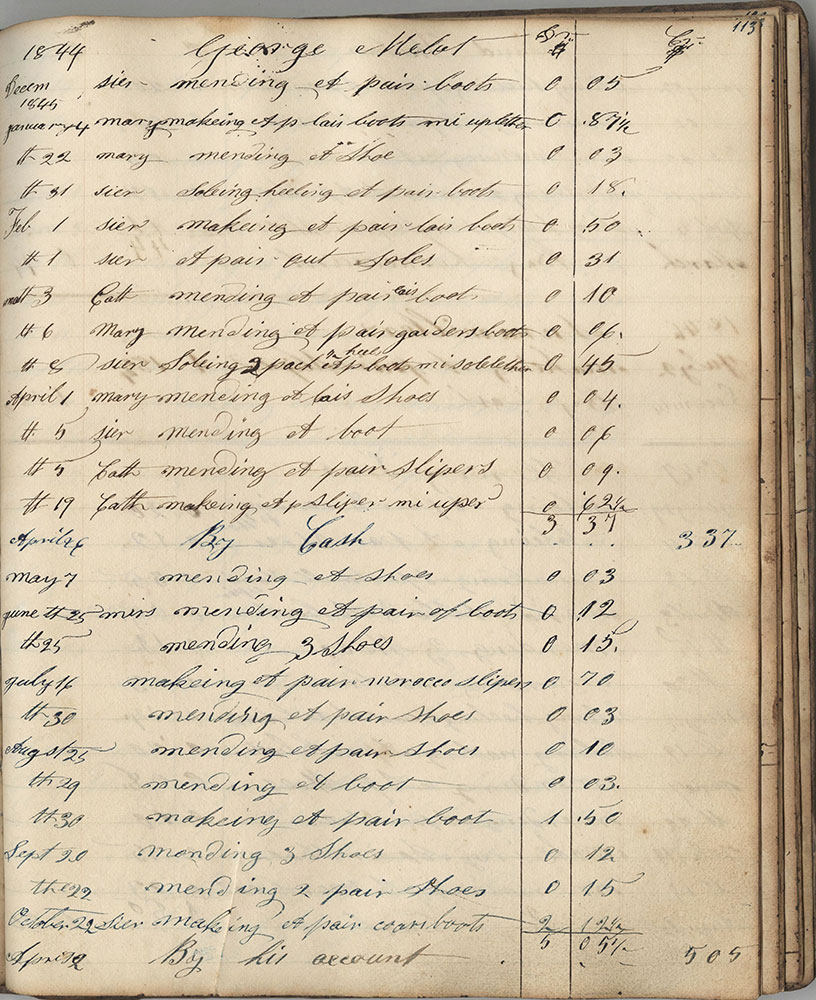 113
1844 George Melot Dr Cr
Decem sier mending A pair boots 0 05
1845
January 4 mary makeing A p lais boots mi upletter 0 .87½
th 22 mary mending A Shoe 0 03
th 31 sier Soleing heeling A pair boots 0 18.
Feb 1 sier makeing A pair lais boots 0 50
th 1 sier A pair out soles 0 31
th 3 Cath mending A pair lais boots 0 10
th 6 Mary mending A pair gaiders boots 0 06.
th 8 sier Soleing 2 pach & heel A p boots mi soleletter 0 45
April 1 mary mending A lais Shoes 0 04.
th 5 sier mending A boot 0 06
th 5 Cath mending A pair slipers 0 09.
th 19 Cath making A p sliper mi uper 0 62½
3 37
April 26 By Cash 3 37
may 7 mending A shoes 0 03
june th 25 mirs mending A pair of boots 0 12
th 25 mending 3 Shoes 0 15.
july 16 makeing A pair morocco slipers 0 70
th 30 mending A pair shoes 0 03
August 25 mending A pair Shoes 0 10
th 29 mending A boot 0 03.
th 30 makeing A pair boot 1 .50
Sept 20 monding 3 Shoes 0 12
the 22 mending 2 pair Shoes 0 15
October 22 sier making A pair coars boots 2 12½
5 05½
April 2 By his account 5 05